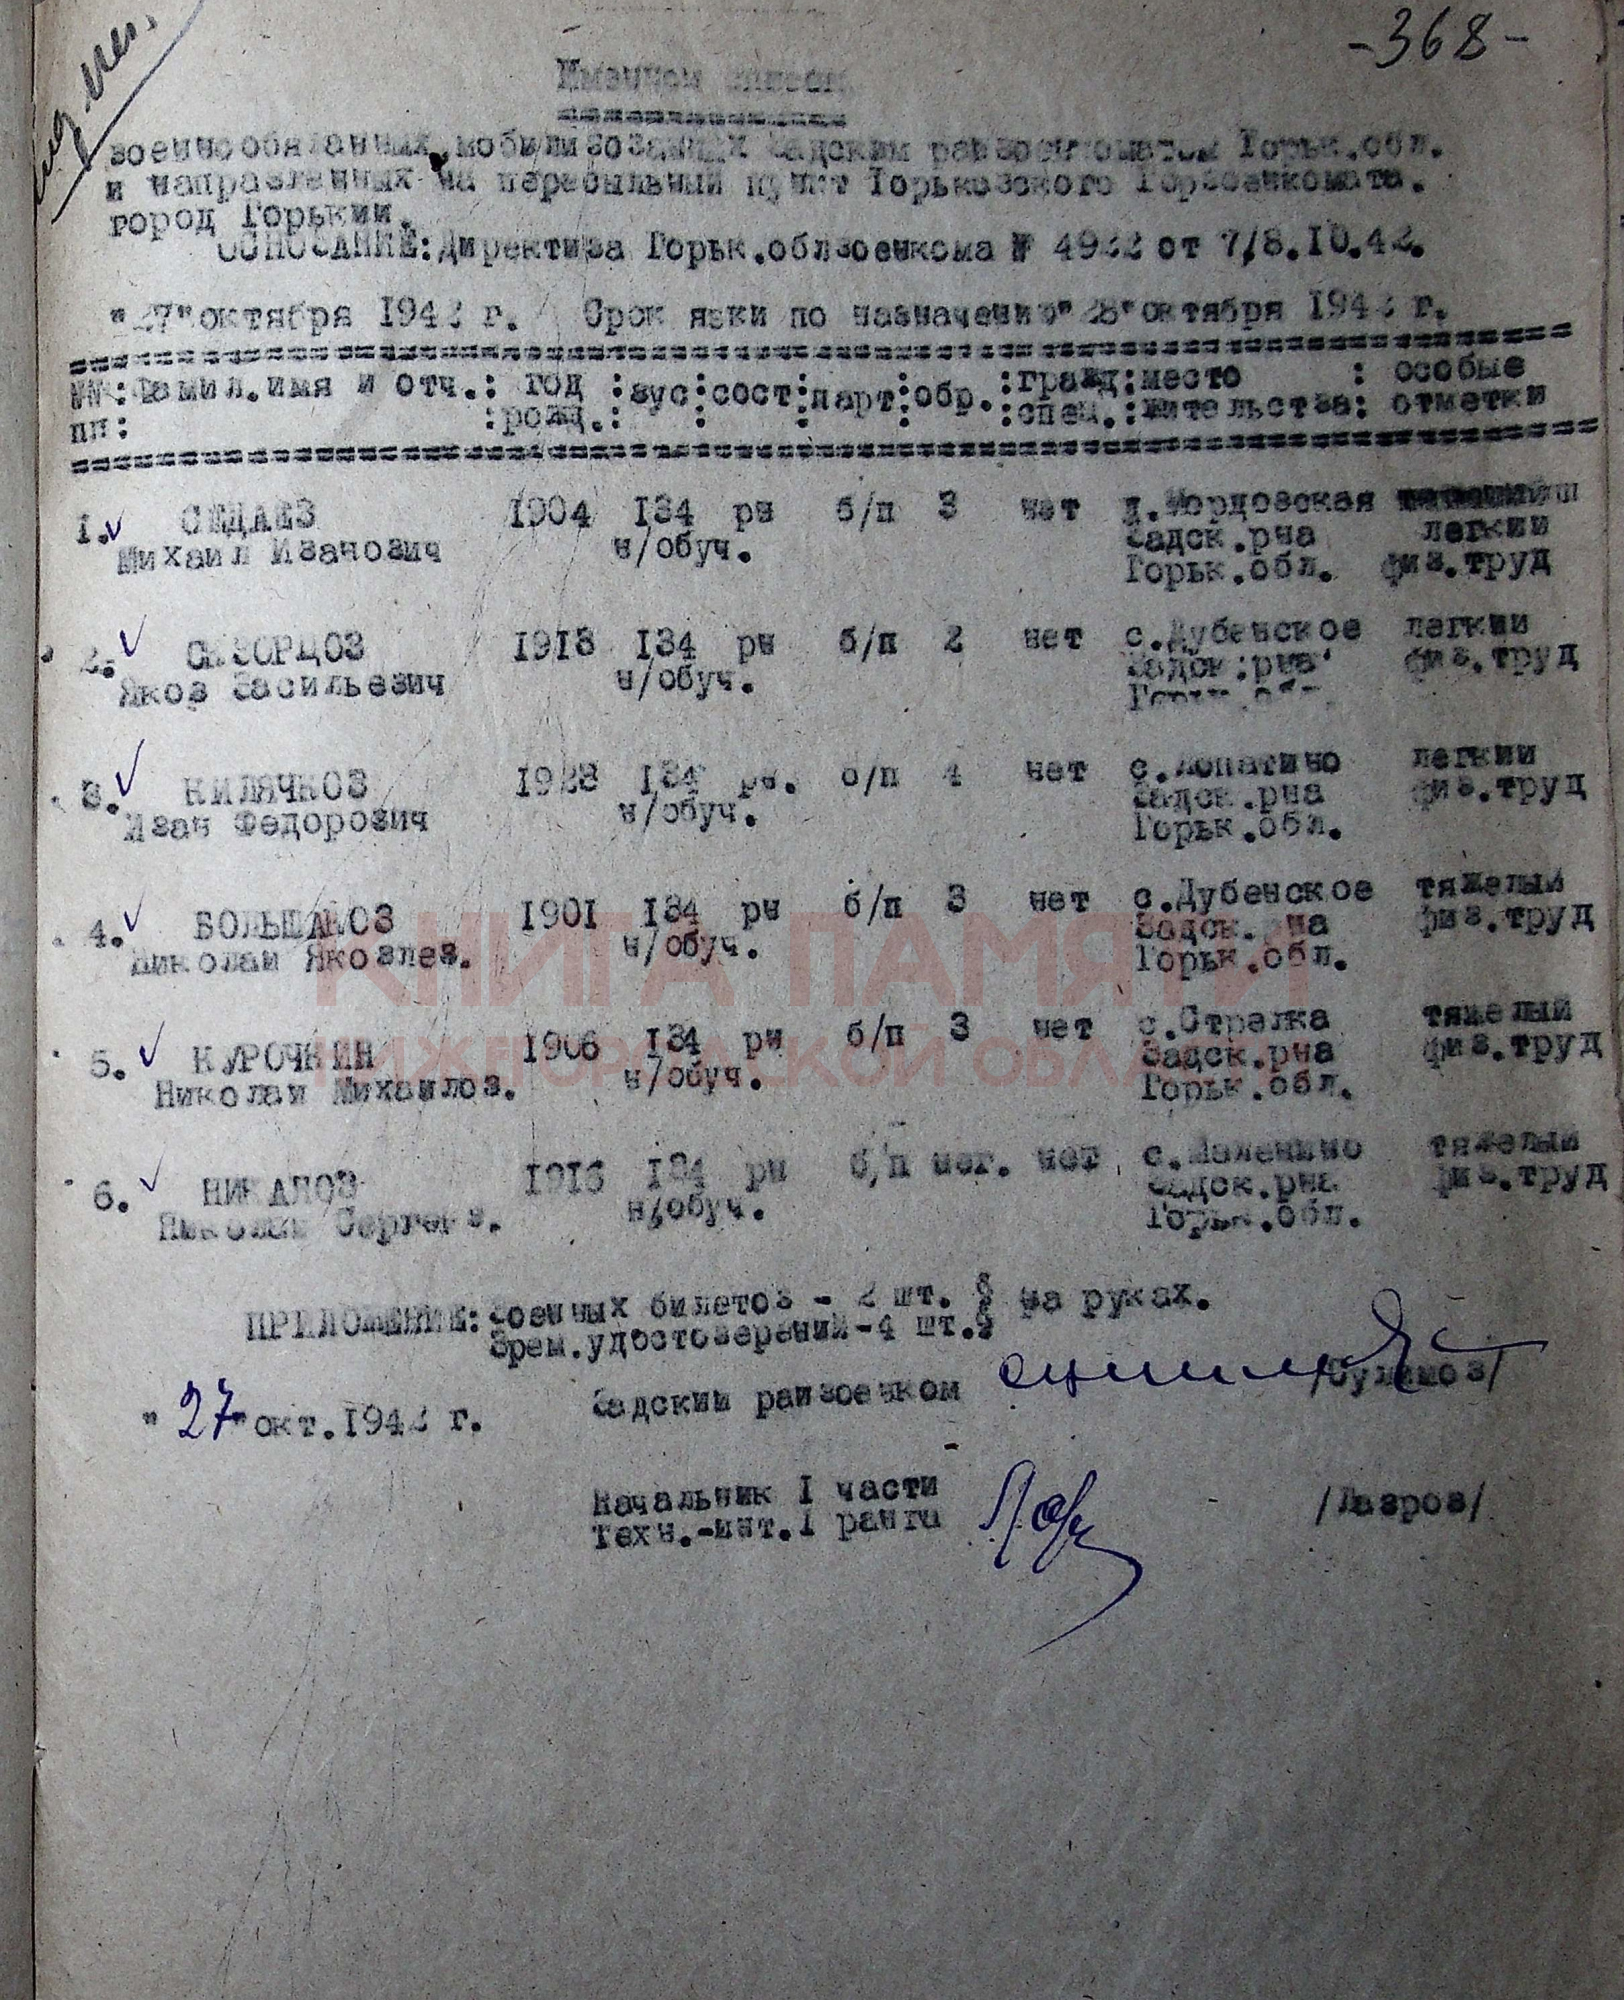 -368-
Именной список
военнообязанных, мобилизованных Вадским райвоенкоматом Горьк.обл.
и направленных на пересыльный пункт Горьковского Горвоенкомата.
город Горький.
ОСНОВАНИЕ: Директива Горьк.облвоенкома № 4922 от 7/8.10.42.
"27" октября 1942 г. Срок явки по назначению "28" октября 1942 г.
№№ : Фамил.имя и отч. : год : вус : сост : парт : обр. : гражд : место : особые
пп : : рожд. : : : : : спец. : жительства : отметки
1. СЕДАЕВ 1904 134 рн б/п 3 нет д.Мордовская
Михаил Иванович н/обуч. Вадск.рна легкий
Горьк.обл. физ.труд
2. СКВОРЦОВ 1913 134 рн б/п 2 нет с.Дубенское легкий
Яков Васильевич н/обуч. Вадск.рна физ.труд
Горьк.обл.
3. КИЛЯЧКОВ 1923 134 рн. б/п 4 нет с.Лопатино легкий
Иван Федорович н/обуч. Вадск.рна физ.труд
Горьк.обл.
4. БОЛЬШАКОВ 1901 134 рн б/п 3 нет с.Дубенское тяжелый
Николай Яковлев. н/обуч. Вадск.рна физ.труд
Горьк.обл.
5. КУРОЧКИН 1906 134 рн б/п 3 нет с.Стрелка тяжелый
Николай Михайлов. н/обуч. Вадск.рна физ.труд
Горьк.обл.
6. 1916 134 рн б/п нег. нет тяжелый
Николай Сергеев. н/обуч. Вадск.рна физ.труд
Горьк.обл.
ПРИЛОЖЕНИЕ: Военных билетов - 2 шт. на руках.
Врем.удостоверений-4 шт.
Вадский райвоенком /Сулимов/
"27" окт.1942 г.
Начальник I части
Техн.-инт.I ранга /Лавров/
КНИГА ПАМЯТИ
НИЖЕГОРОДСКОЙ ОБЛАСТИ